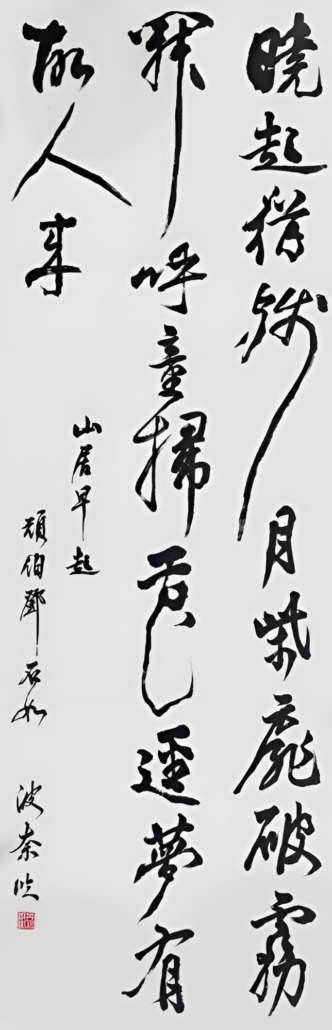 曉起猶殘月柴扉破霧
開呼童掃逕夢有
故人來
山居早起
頑伯鄧石如 波